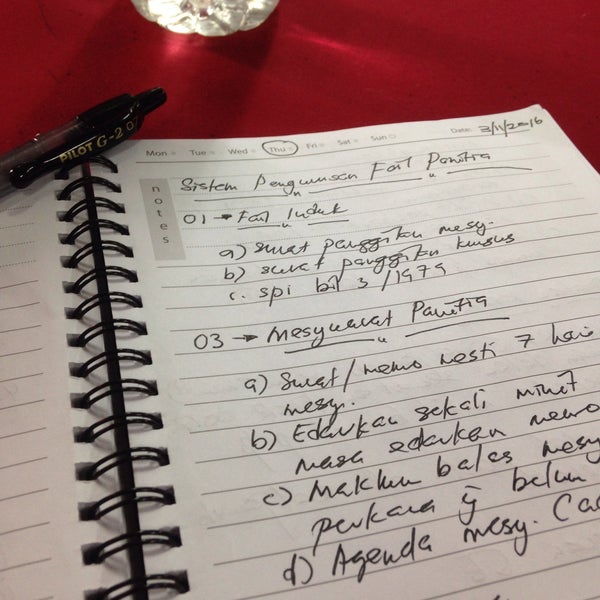 PILOT G-2 07
Mon Tue Wed Thu Fri Sat Sun Date: 3/11/2016
notes
Sistem Pengurusan Fail Panitia
01 → Fail Induk
a) surat panggilan mesy.
b) surat panggilan kursus
c. spi bil 3/1979
03 → Mesyuarat Panitia
a) Surat/memo mesti 7 hari
mesy.
b) Edarkan sekali minit
masa edarkan memo
c) Maklum balas mesy
perkara yg belum
d) Agenda mesy. (Ca